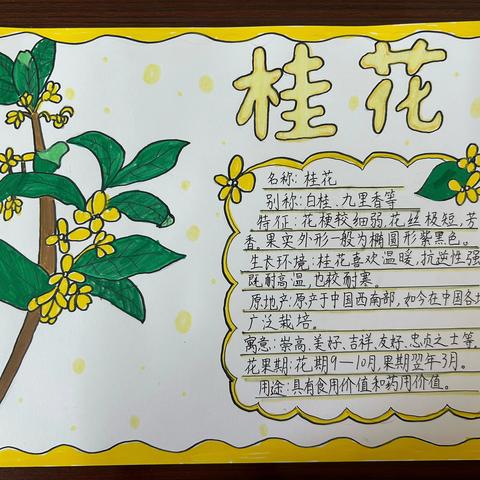 桂花
名称:桂花
别称:白桂、九里香等
特征:花梗较细弱,花丝极短,芳
香,果实外形一般为椭圆形紫黑色。
生长环境:桂花喜欢温暖,抗逆性强
既耐高温,也较耐寒。
原地产:原产于中国西南部,如今在中国各地
广泛栽培。
寓意:崇高、美好、吉祥、友好、忠贞之士等。
花果期:花期9—10月,果期翌年3月。
用途:具有食用价值和药用价值。